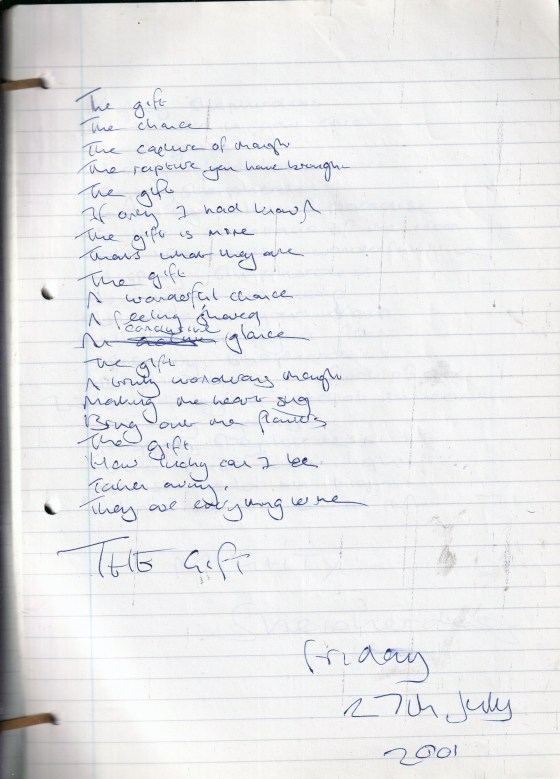 The gift
The chance
The capture of thought
The rapture you have brought
The gift
If only I had known
The gift is mine
Thats what they are
The gift
A wonderful chance
A feeling shared
A conclusive glance
The gift
A wondering thought
Making the heart sing
Bring out the
The gift
How lucky can I be
Taken away.
They are everything to me
THE GifT
Friday
27th July
2001